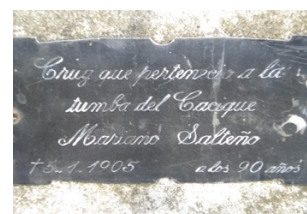 Cruz que pertenecio a la
tumba del Cacique
Mariano Salteño
†5-1-1905 a los 90 años